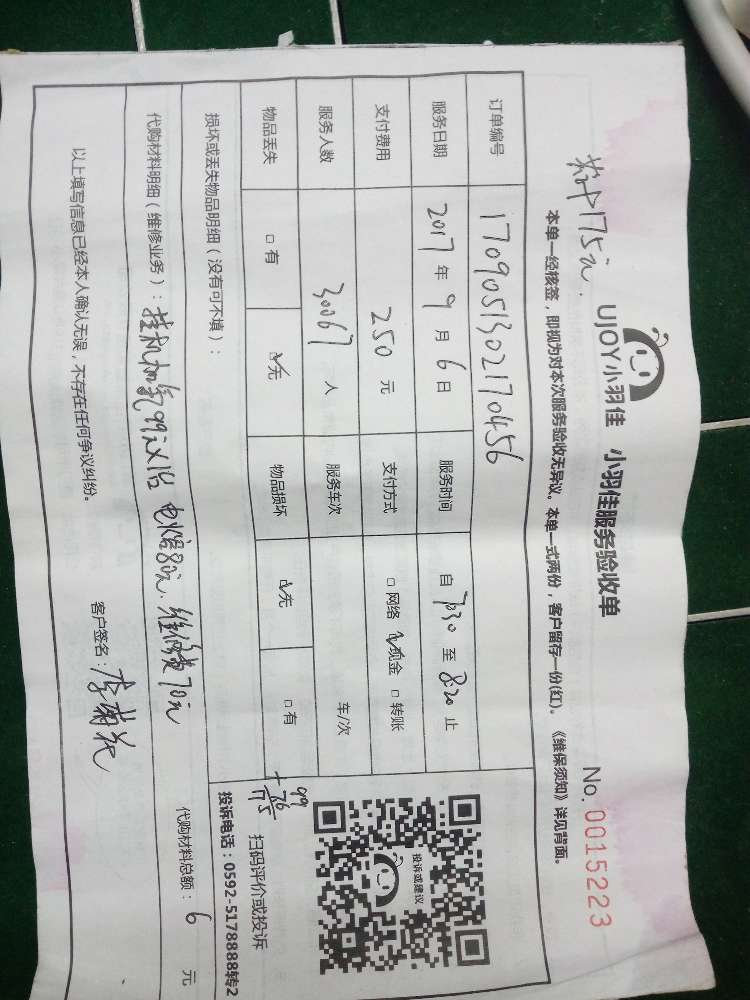 共计175元.
UJOY小羽佳 小羽佳服务验收单
No. 0015223
本单一经核签，即视为对本次服务验收无异议。本单一式两份，客户留存一份(红)。《维保须知》详见背面。
订单编号 1709051302170456
服务日期 2017年9月6日 服务时间 自7:30至8:20止
支付费用 250元 支付方式 □网络 ☑现金 □转账
服务人数 30067人 服务车次 车/次
物品丢失 □有 ☑无 物品损坏 ☑无 □有
损坏或丢失物品明细（没有可不填）：
代购材料明细（维修业务）：挂机加氟99元×1台 电容80元、维修费70元
代购材料总额：6元
以上填写信息已经本人确认无误，不存在任何争议纠纷。
客户签名：李菊花
投诉或建议
99
+76
175
扫码评价或投诉
投诉电话：0592-5178888转2